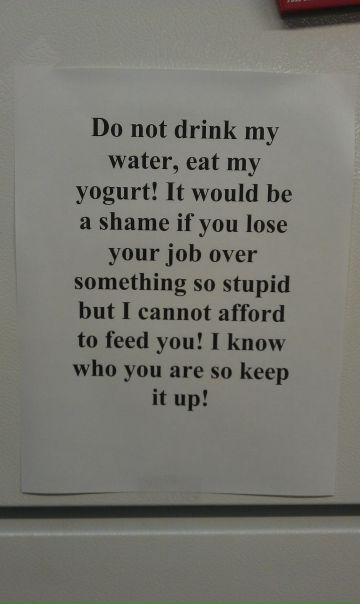 Do not drink my
water, eat my
yogurt! It would be
a shame if you lose
your job over
something so stupid
but I cannot afford
to feed you! I know
who you are so keep
it up!